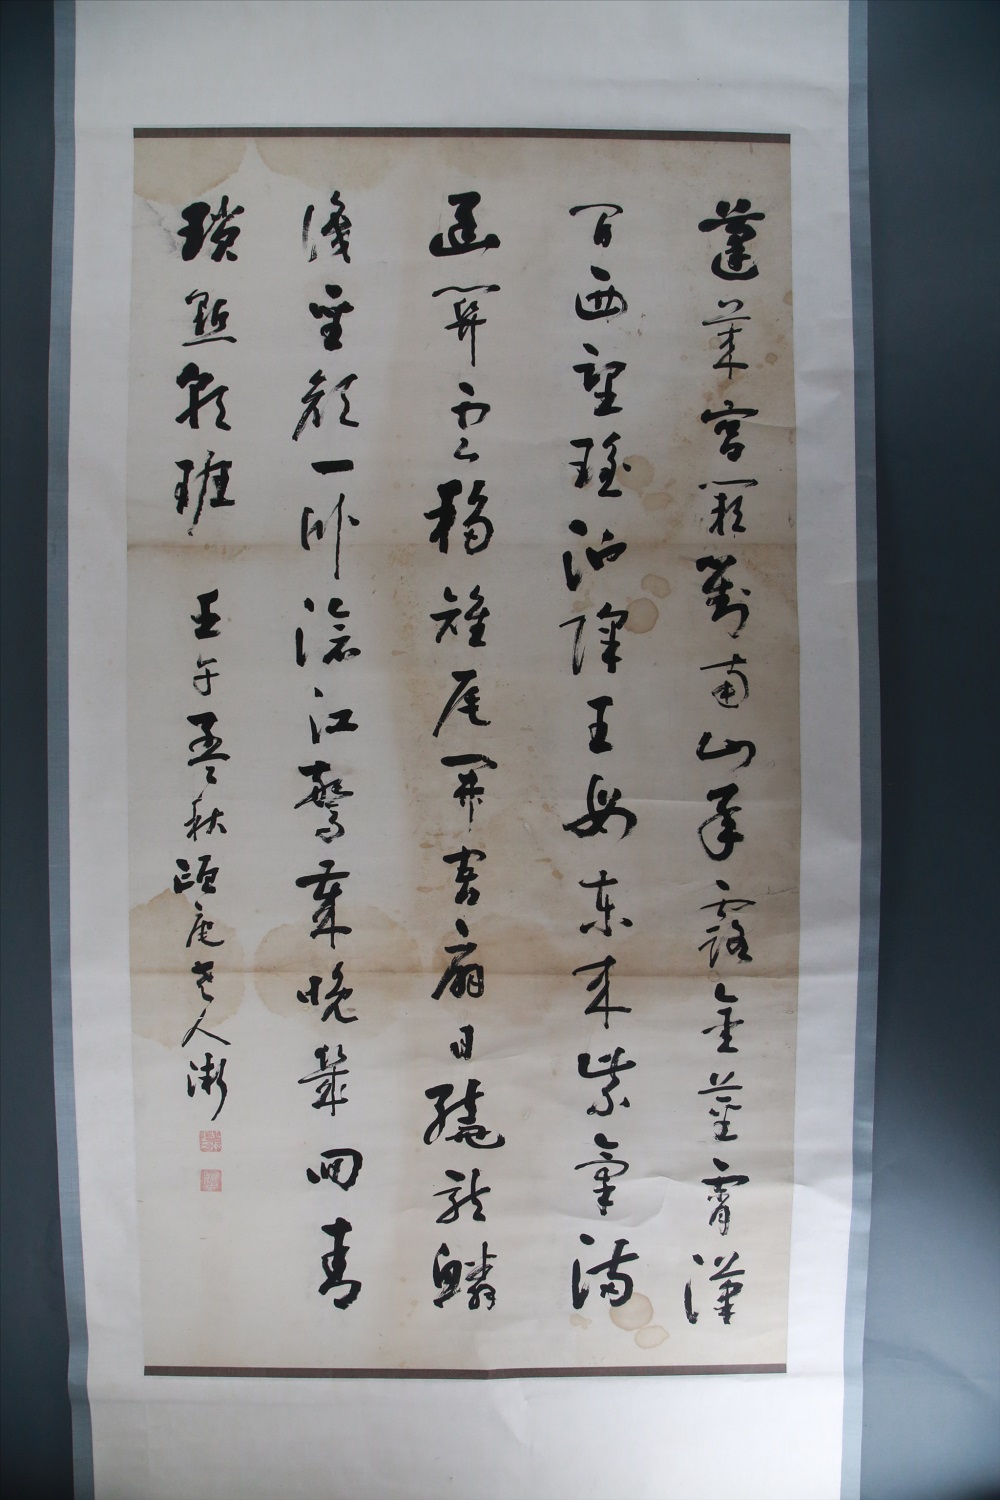 蓬萊宮闕對南山承露金莖霄漢
間西望瑤池降王母東来紫氣滿
函關雲移雉尾開宮扇日繞龍鱗
識聖顏一卧滄江驚歲晚幾回青
瑣點朝班 壬午孟秋頤庵老人